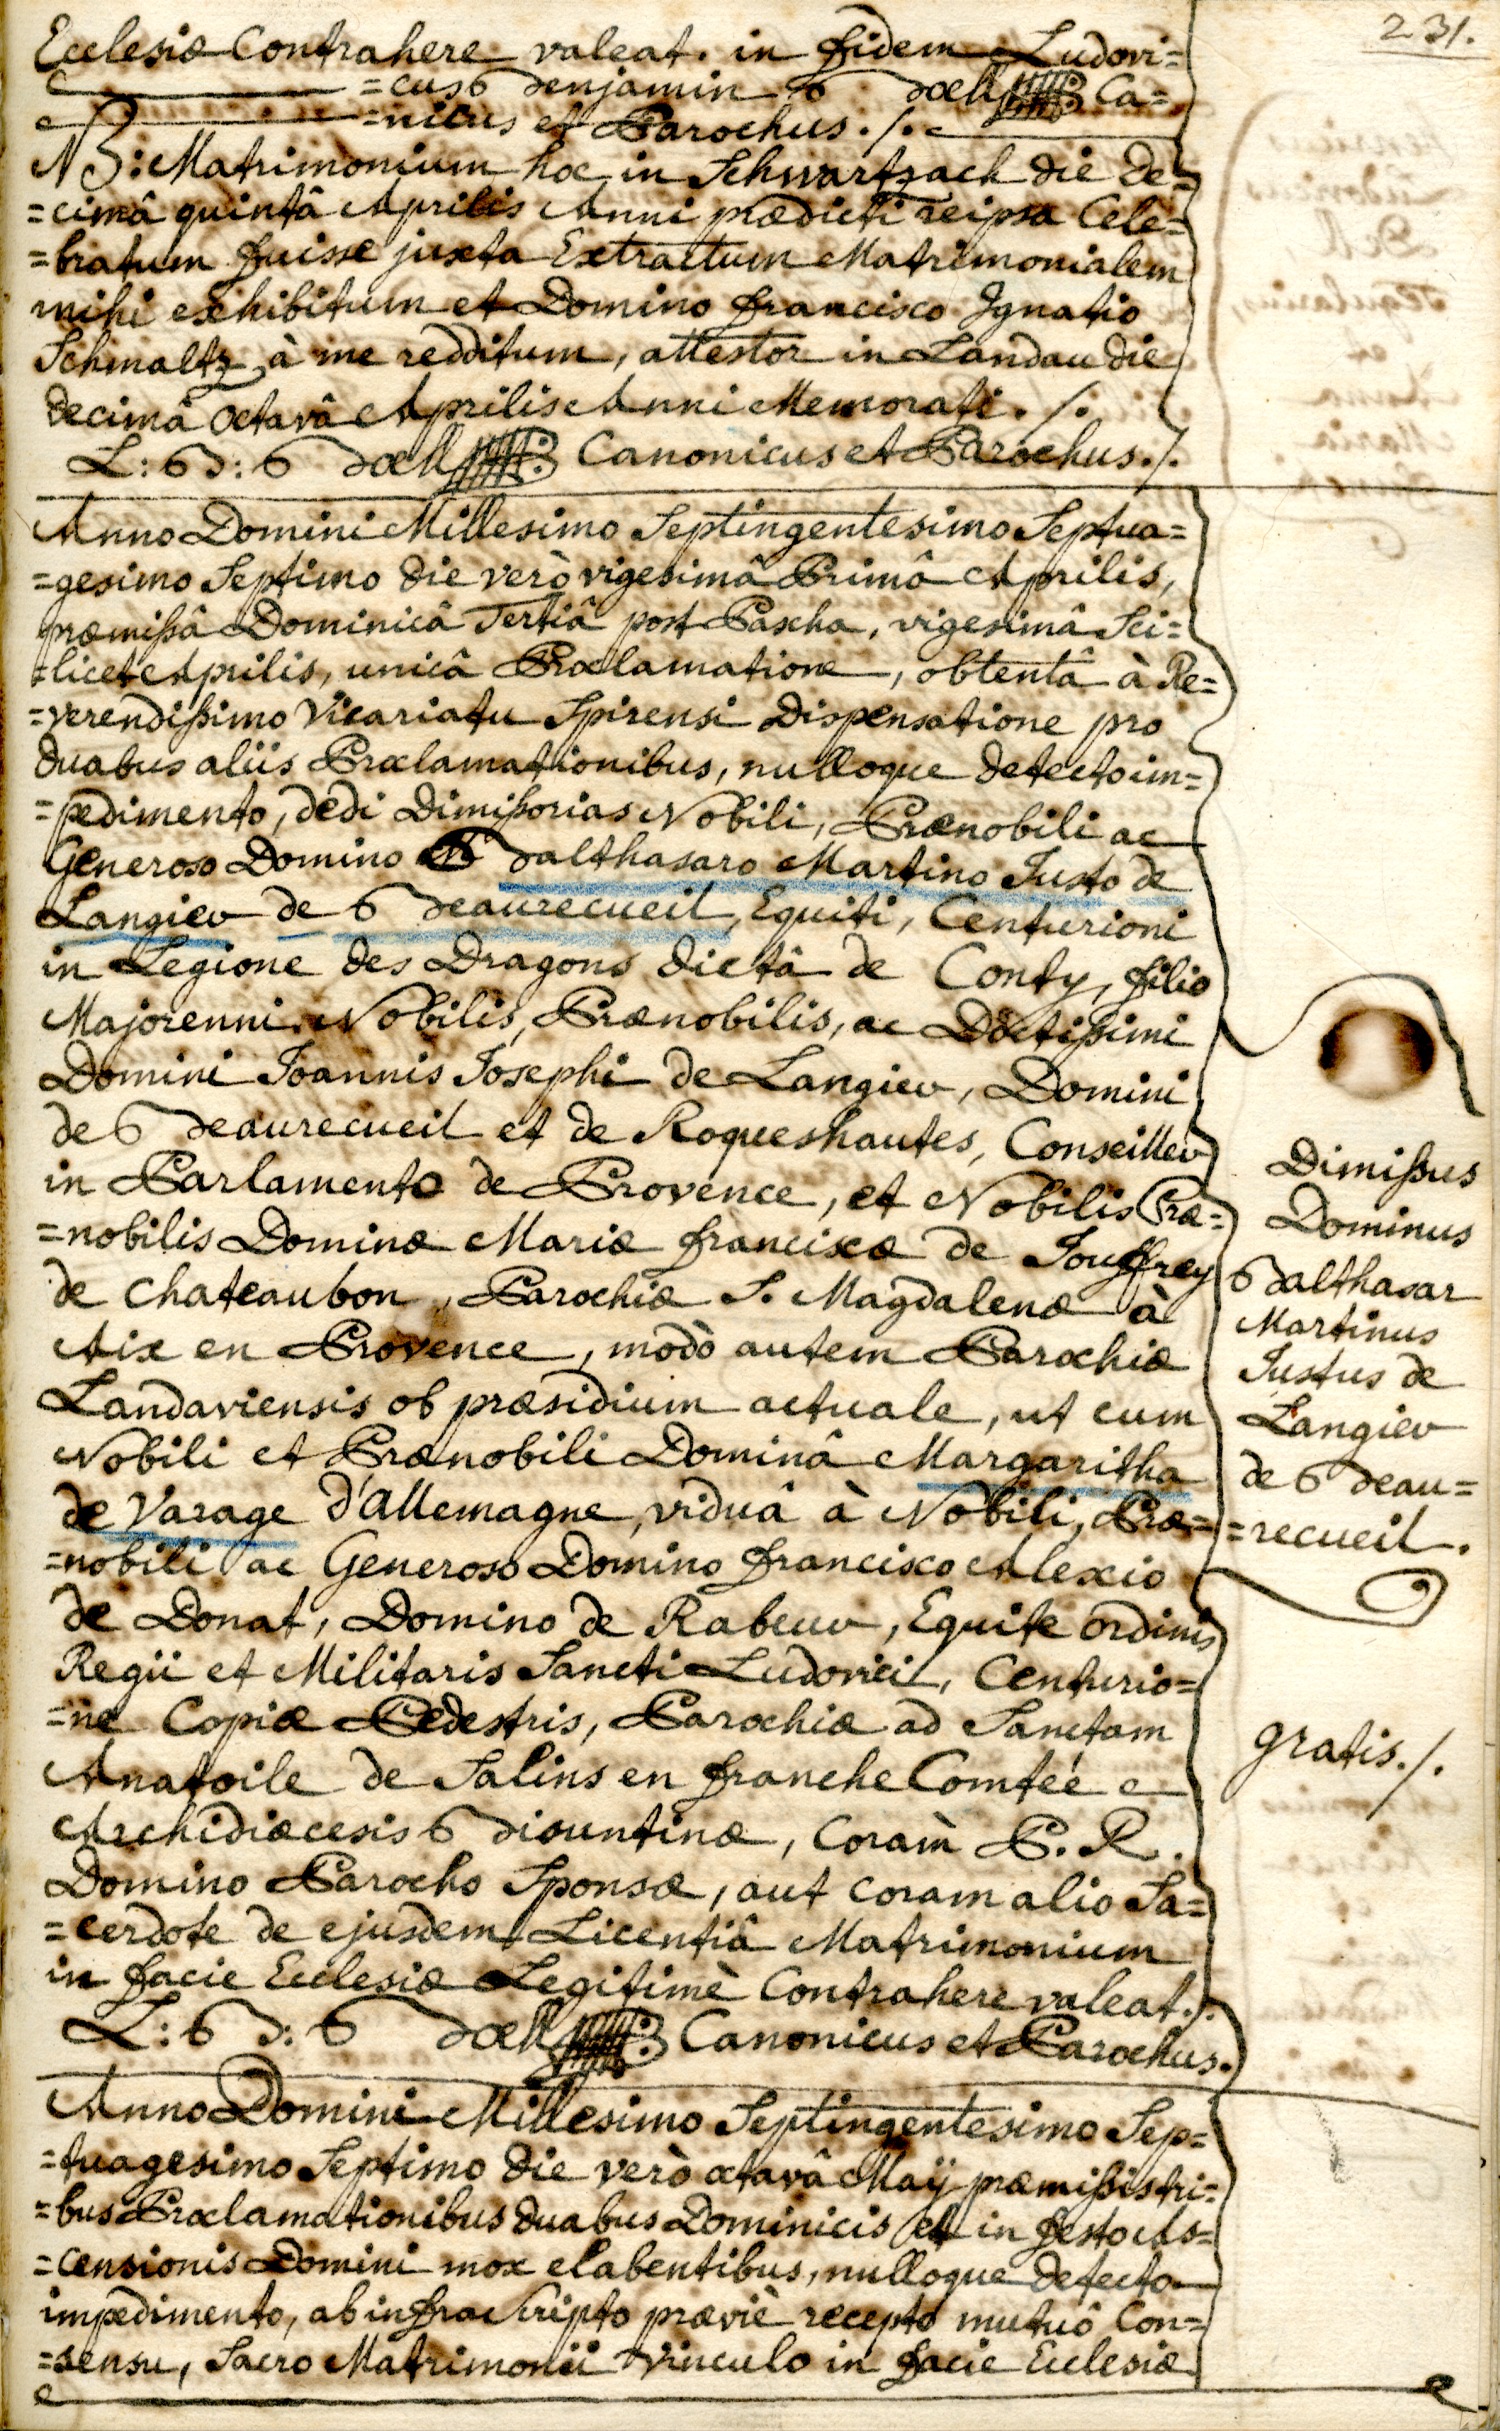 231.
Ecclesiæ Contrahere valeat. in fidem Ludovi=
=cus Benjamin Boell Ca=
=nicus et Parochus ./.
NB: Matrimonium hoc in Schwartzach die De=
=cimâ quintâ Aprilis Anni prædicti reipsa Cele=
=bratum fuisse juxta Extractum Matrimonialem
mihi exhibitum et Domino francisco Ignatio
Schmaltz à me redditum, attestor in Landau die
decimâ octavâ Aprilis Anni Memorati. /.
L: B: Boell Canonicus et Parochus ./.
Anno Domini Millesimo Septingentesimo Septua=
=gesimo Septimo die verò vigesimâ Primâ Aprilis,
præmißâ Dominicâ Tertiâ post Pascha, vigesimâ Sci=
=licet Aprilis, unicâ Proclamatione, obtentâ à Re=
=verendißimo Vicariatu Spirensi Dispensatione pro
duabus aliis Proclamationibus, nulloque detecto im=
=pedimento, dedi Dimißorias Nobili, Prænobili ac
Generoso Domino Balthasaro Martino Justo de
Langiev de Beaurecueil, Equiti, Centurioni
in Legione des Dragons dictâ de Conty, filio
Majorenni Nobilis, Prænobilis, ac Doctißimi
Domini Joannis Josephi de Langiev, Domini
de Beaurecueil et de Roqueshautes, Conseiller
in Parlamento de Provence, et Nobilis Præ=
=nobilis Dominæ Mariæ franciscæ de Jouffrey
de Chateaubon, Parochiæ S. Magdalenæ à
Aix en Provence, modò autem Parochiæ
Landaviensis ob præsidium actuale, ut cum
Nobili et Prænobili Dominâ Margaritha
de Varage d'Allemagne, viduâ à Nobili, Præ=
=nobili ac Generoso Domino francisco Alexio
de Donat, Domino de Rabeuv, Equite ordinis
Regii et Militaris Sancti Ludovici, Centurio=
=ne Copiæ Pedestris, Parochiæ ad Sanctam
Anatoile de Salins en franche Comteé
Archidiœcesis Bisuntinæ, Coràm P. R.
Domino Parocho Sponsæ, aut coram alio Sa=
=cerdote de ejusdem Licentiâ Matrimonium
in facie Ecclesiæ Legitimè Contrahere valeat ./.
L: B: Boell Canonicus et Parochus.
Dimißus
Dominus
Balthasar
Martinus
Justus de
Langiev
de Beau=
=recueil.
gratis ./.
Anno Domini Millesimo Septingentesimo Sep=
=tuagesimo Septimo die verò octavâ Maÿ præmißis tri=
=bus Proclamationibus duabus Dominicis et in festo As=
=censionis Domini mox elabentibus, nulloque detecto
impedimento, ab infra scripto præviè recepto mutuô Con=
=sensu, Sacro Matrimonii vinculo in facie Ecclesiæ